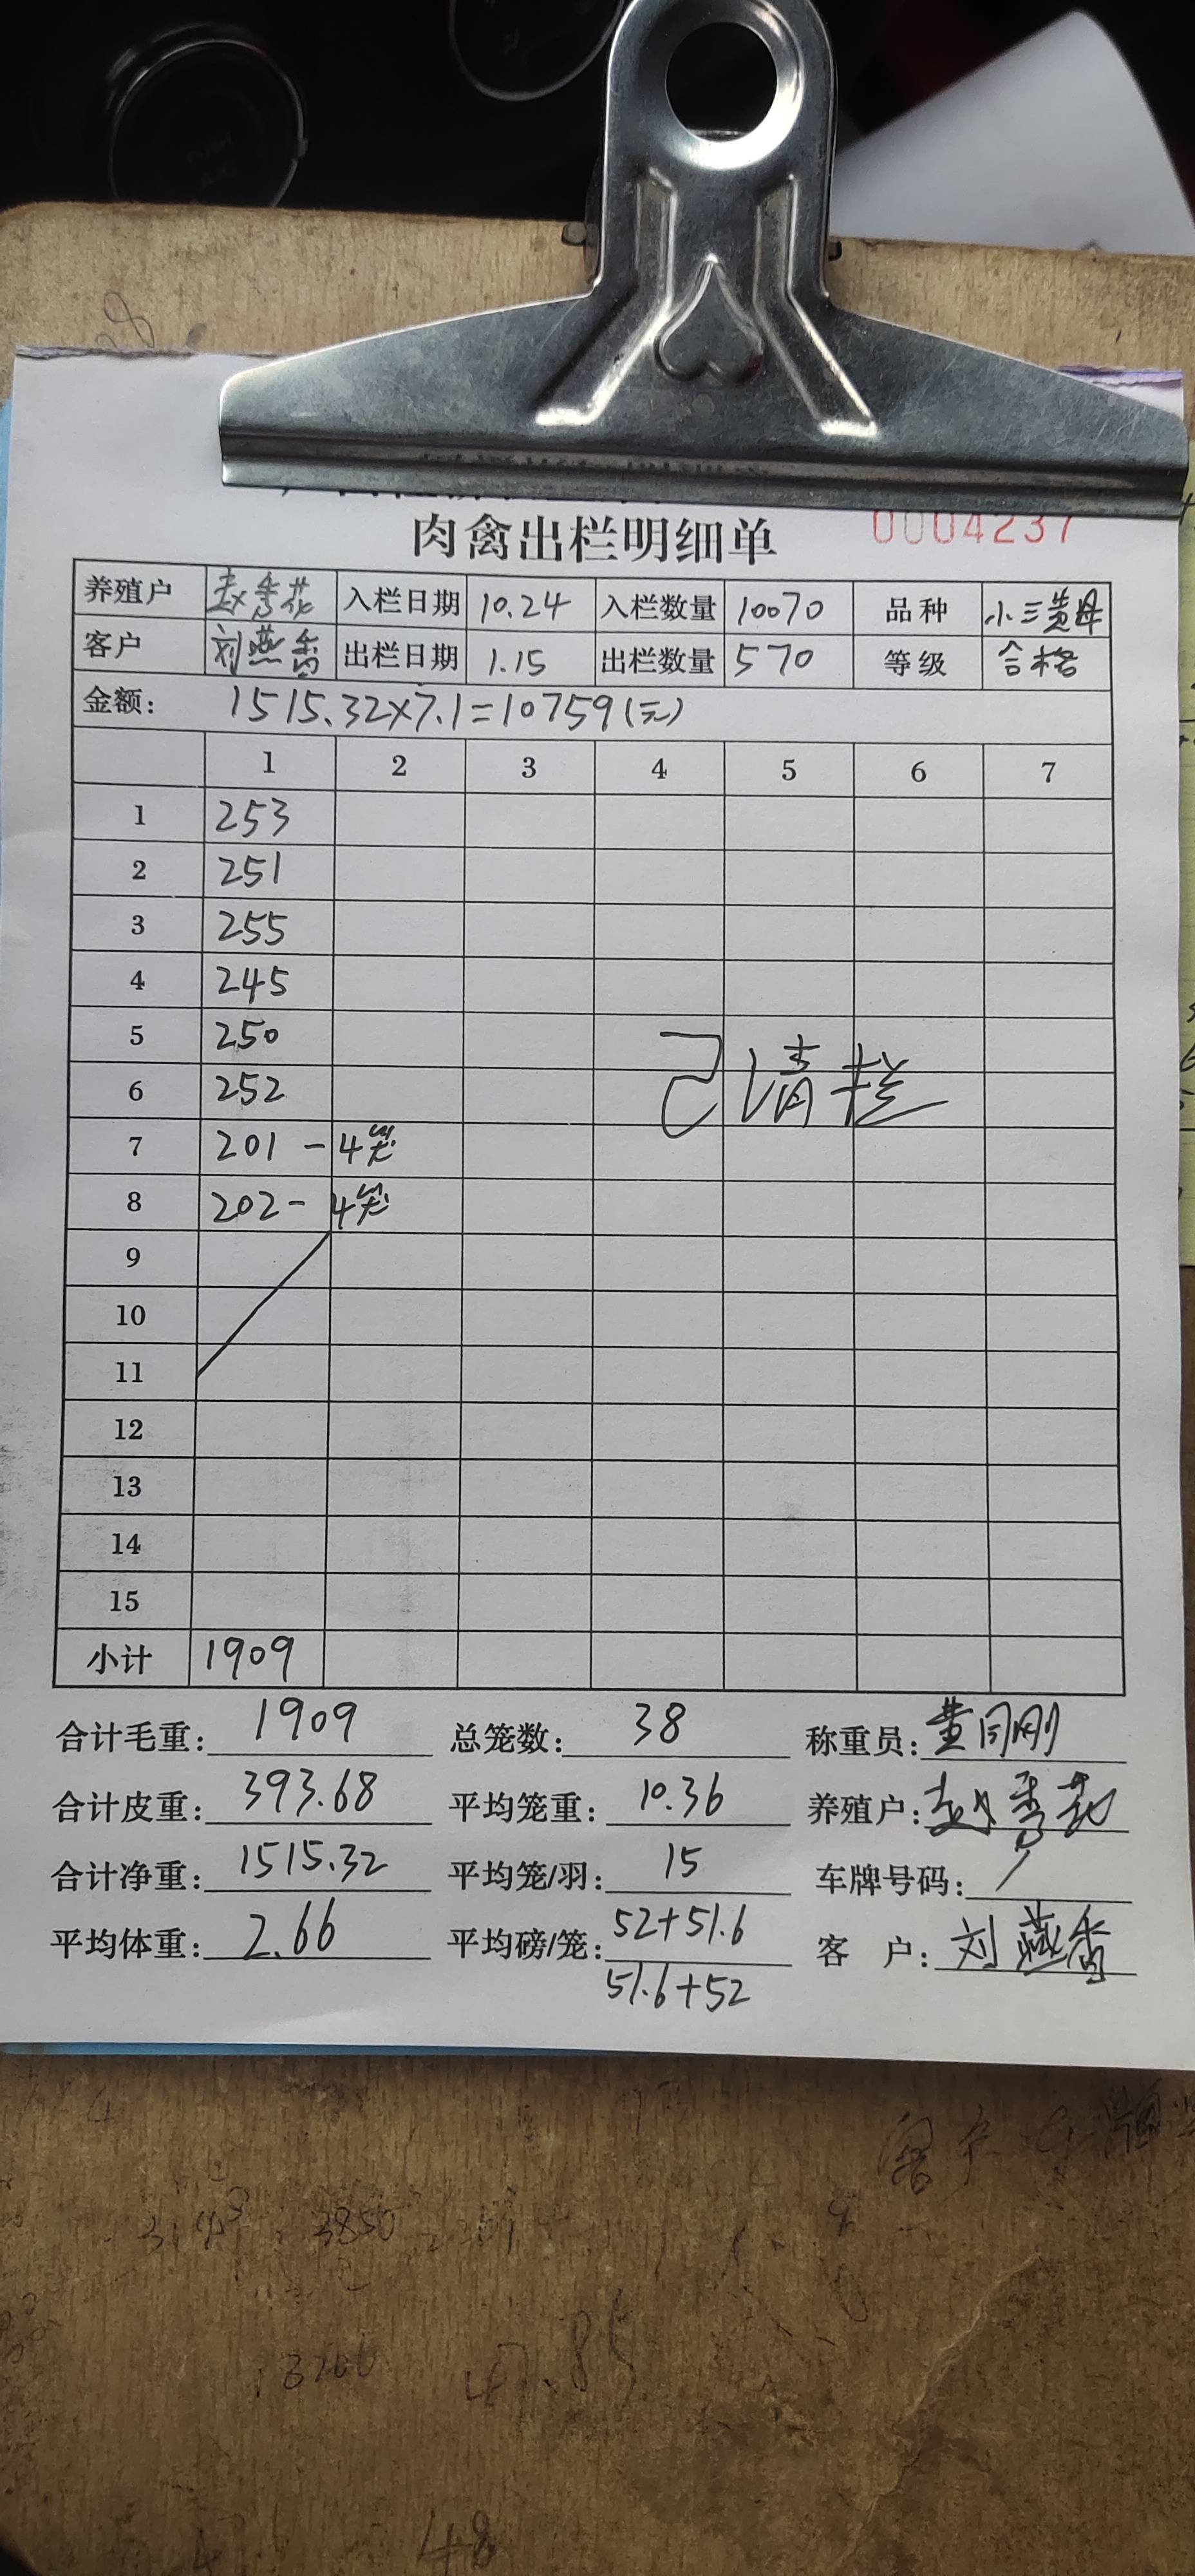 肉禽出栏明细单 0004237
养殖户 赵秀花 入栏日期 10.24 入栏数量 10070 品种 小三黄母
客户 刘燕香 出栏日期 1.15 出栏数量 570 等级 合格
金额: 1515.32×7.1=10759(元)
1 2 3 4 5 6 7
1 253
2 251
3 255
4 245
5 250
6 252
已清栏
7 201 - 4笼
8 202 - 4笼
9
10
11
12
13
14
15
小计 1909
合计毛重: 1909 总笼数: 38 称重员: 黄同刚
合计皮重: 393.68 平均笼重: 10.36 养殖户: 赵秀花
合计净重: 1515.32 平均笼/羽: 15 车牌号码: /
平均体重: 2.66 平均磅/笼: 52+51.6 客 户: 刘燕香
51.6+52
3850
3200
48